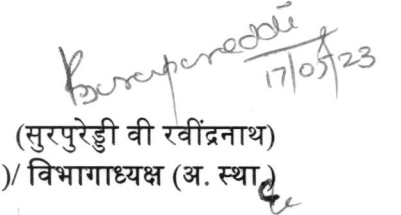 17/05/23
(सुरपुरेड्डी वी रवींद्रनाथ)
)/ विभागाध्यक्ष (अ. स्था.)